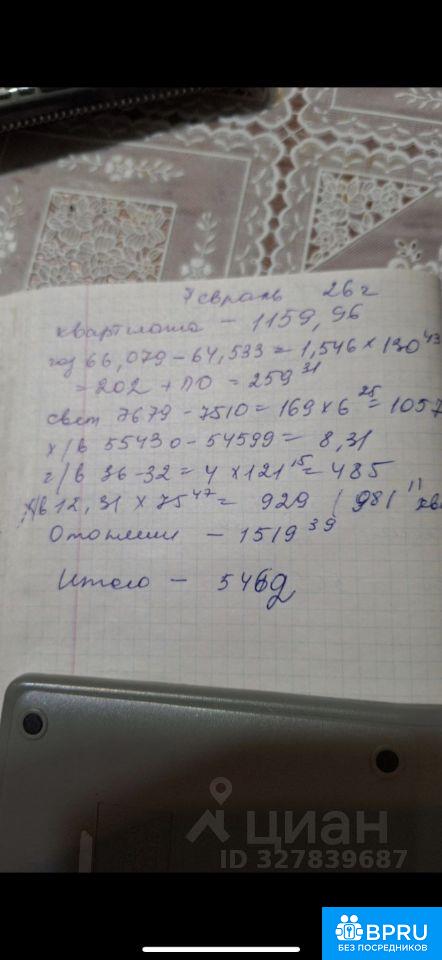 Февраль 26г
Квартплата – 1159,96
газ 66,079 – 64,533 = 1,546 × 130 43
= 202 + ПО = 259 31
свет 7679 – 7510 = 169 × 6 25 = 1057
х/в 55430 – 54599 = 8,31
г/в 36 – 32 = 4 × 121 15 = 485
х/в 12,31 × 75 47 = 929 (981 11
Отопление – 1519 39
Итого – 5469
циан
ID 327839687
BPRU
БЕЗ ПОСРЕДНИКОВ